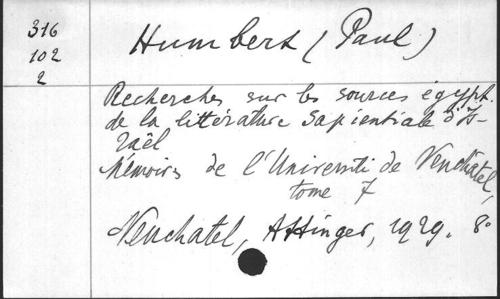 316
102
2
Humbert (Paul)
Recherches sur les sources égypt.
de la littérature sapientiale d'Is-
raël
Mémoires de l'Université de Neuchatel,
tome 7
Neuchatel, Attinger, 1929. 8°